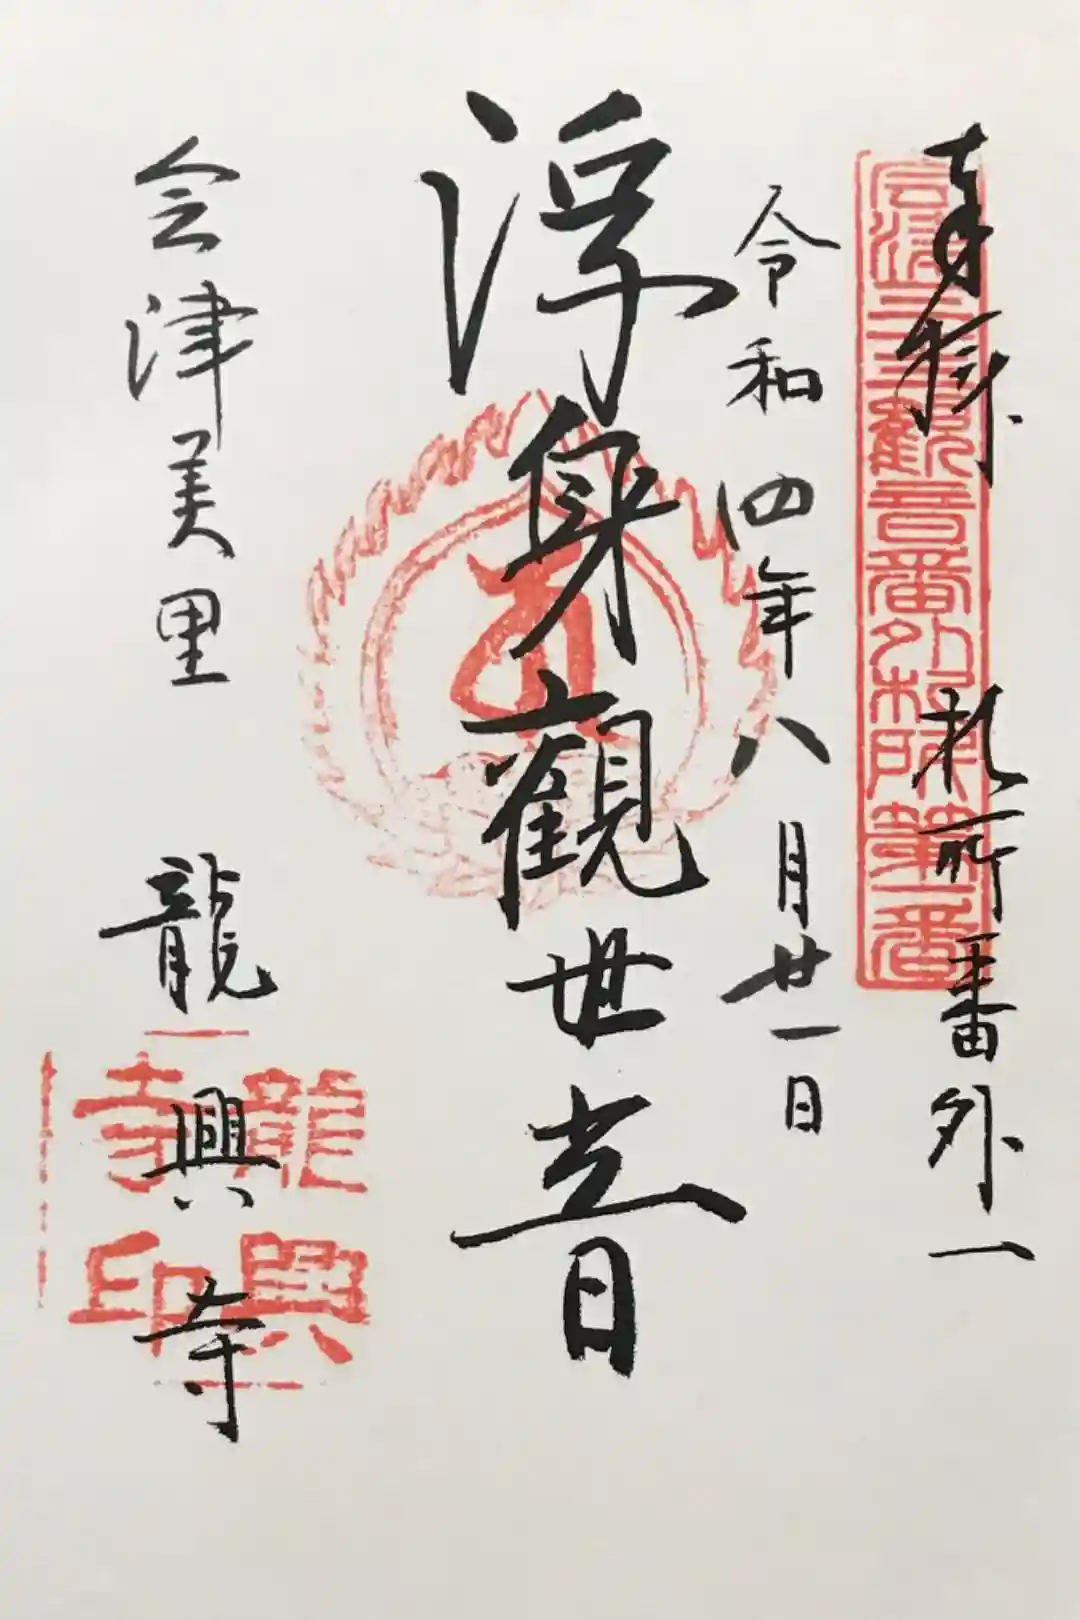 奉拝 札所番外一
會津三十三観音番外札所第一番
令和四年八月廿一日
浮身觀世音
会津美里 龍興寺
龍興寺印